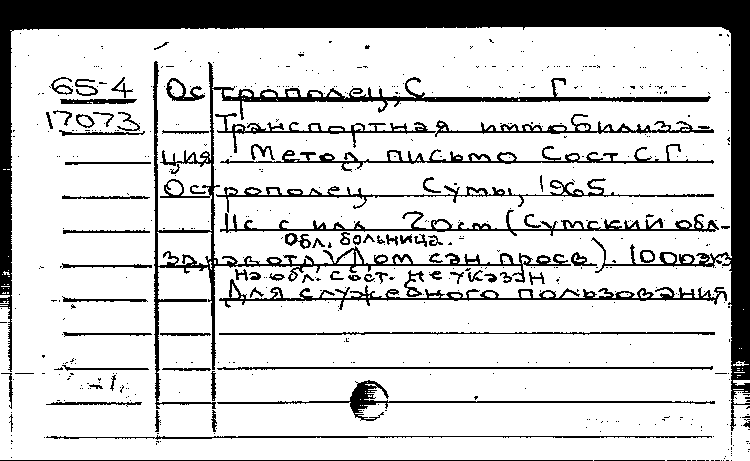 65-4 Острополец, С Г
17073 Транспортная иммобилиза-
ция. Метод. письмо Сост. С.Г.
Острополец Сумы, 1965.
11с с илл 20см (Сумский обл-
Обл. больница.
здравотд. Дом сан. просв). 1000экз
На обл. сост. не указан.
Для служебного пользования